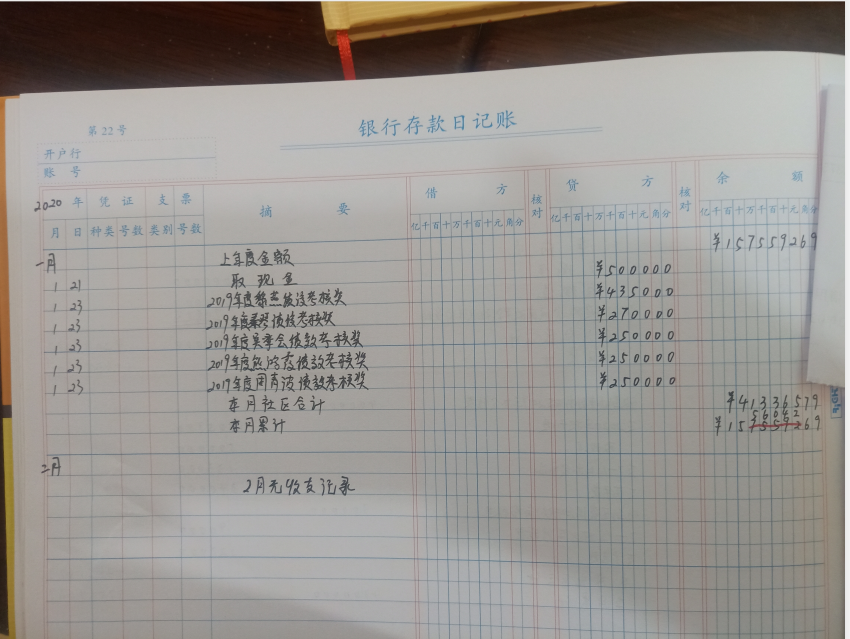 银行存款日记账
第 22 号
开户行
账 号
2020 年 凭 证 支 票 摘 要 借 方 核对 贷 方 核对 余 额
月 日 种类 号数 类别 号数 亿千百十万千百十元角分 亿千百十万千百十元角分 亿千百十万千百十元角分
一月 上年度金额 ¥157559269
1 21 取现金 ¥500000
1 23 2019年度 绩效考核奖 ¥435000
1 23 2019年度 绩效考核奖 ¥270000
1 23 2019年度吴季会绩效考核奖 ¥250000
1 23 2019年度 绩效考核奖 ¥250000
1 23 2019年度周青波绩效考核奖 ¥250000
本月社区合计 ¥41336579
本月累计 ¥157559269
56042
二月
2月无收支记录